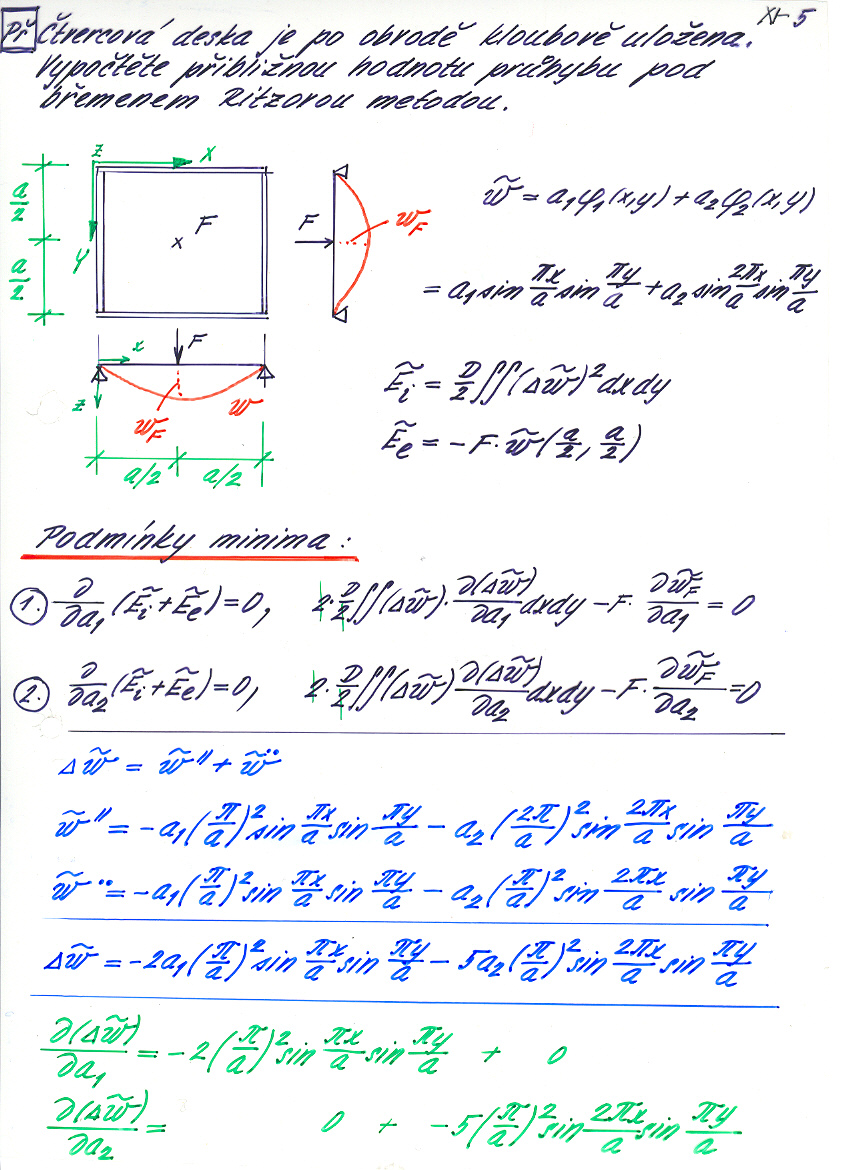 XI-5
Př Čtvercová deska je po obvodě kloubově uložena.
Vypočtěte přibližnou hodnotu průhybu pod
břemenem Ritzovou metodou.
z x
a/2
F
a/2
y
F
w_F
w̃ = a₁φ₁(x,y) + a₂φ₂(x,y)
= a₁ sin πx/a sin πy/a + a₂ sin 2πx/a sin πy/a
x
F
z
w_F
w
a/2 a/2
Ẽᵢ = D/2 ∬(Δw̃)² dxdy
Ẽₑ = −F·w̃(a/2, a/2)
Podmínky minima:
1. ∂/∂a₁ (Ẽᵢ+Ẽₑ) = 0, 2·D/2 ∬(Δw̃)·∂(Δw̃)/∂a₁ dxdy − F·∂w̃_F/∂a₁ = 0
2. ∂/∂a₂ (Ẽᵢ+Ẽₑ) = 0, 2·D/2 ∬(Δw̃) ∂(Δw̃)/∂a₂ dxdy − F·∂w̃_F/∂a₂ = 0
Δw̃ = w̃'' + w̃¨
w̃'' = −a₁(π/a)² sin πx/a sin πy/a − a₂(2π/a)² sin 2πx/a sin πy/a
w̃¨ = −a₁(π/a)² sin πx/a sin πy/a − a₂(π/a)² sin 2πx/a sin πy/a
Δw̃ = −2a₁(π/a)² sin πx/a sin πy/a − 5a₂(π/a)² sin 2πx/a sin πy/a
∂(Δw̃)/∂a₁ = −2(π/a)² sin πx/a sin πy/a + 0
∂(Δw̃)/∂a₂ = 0 + −5(π/a)² sin 2πx/a sin πy/a